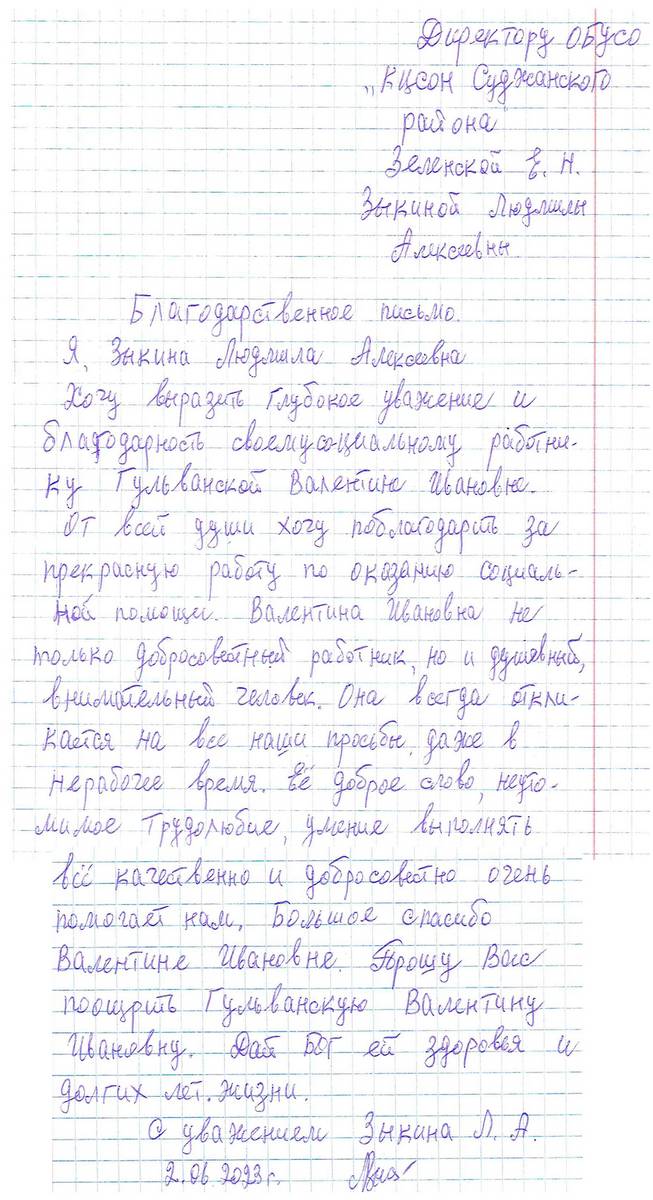 Директору ОБУСО
„КЦСОН Суджанского
района"
Зеленской Е. Н.
Зыкиной Людмилы
Алексеевны
Благодарственное письмо.
Я, Зыкина Людмила Алексеевна
Хочу выразить глубокое уважение и
благодарность своему социальному работни-
ку Гульванской Валентине Ивановне.
От всей души хочу поблагодарить за
прекрасную работу по оказанию социаль-
ной помощи. Валентина Ивановна не
только добросовестный работник, но и душевный,
внимательный человек. Она всегда откли-
кается на все наши просьбы, даже в
нерабочее время. Её доброе слово, неуто-
мимое трудолюбие, умение выполнять
всё качественно и добросовестно очень
помогает нам. Большое спасибо
Валентине Ивановне. Прошу Вас
поощрить Гульванскую Валентину
Ивановну. Дай Бог ей здоровья и
долгих лет. жизни.
С уважением Зыкина Л. А.
2.06.2023 г.